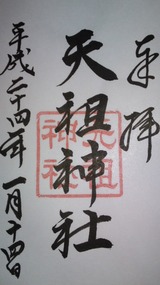 奉拝
天祖神社
天祖
神社
平成二十四年一月十四日